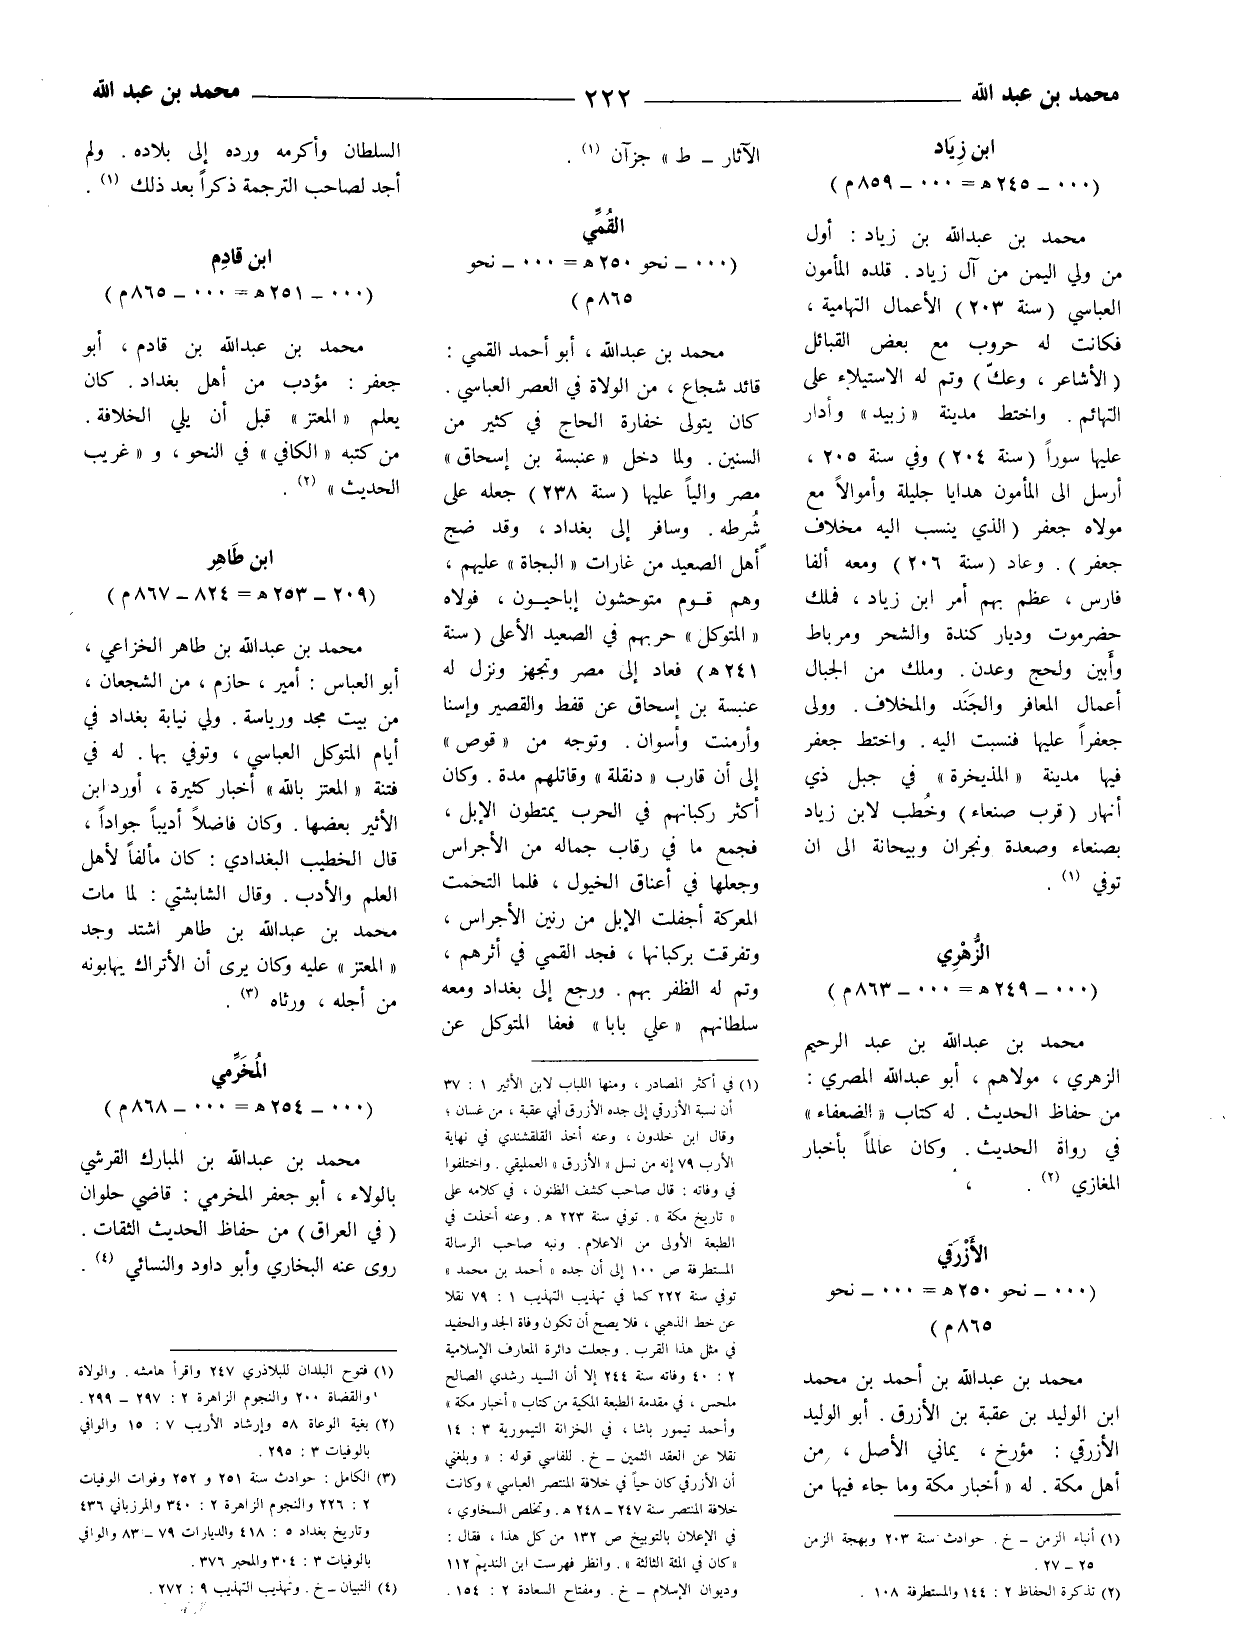 محمد بن عبد الله ــــــ ٢٢٢ ــــــ محمد بن عبد الله
ابن زِيَاد
(٠٠٠ ــ ٢٤٥ ه‍ = ٠٠٠ ــ ٨٥٩ م)
محمد بن عبدالله بن زياد : أول
من ولي اليمن من آل زياد . قلده المأمون
العباسي (سنة ٢٠٣) الأعمال التهامية ،
فكانت له حروب مع بعض القبائل
(الأشاعر ، وعكّ) وتم له الاستيلاء على
التهائم . واختط مدينة «زبيد» وأدار
عليها سوراً (سنة ٢٠٤) وفي سنة ٢٠٥ ،
أرسل الى المأمون هدايا جليلة وأموالاً مع
مولاه جعفر (الذي ينسب اليه مخلاف
جعفر) . وعاد (سنة ٢٠٦) ومعه ألفا
فارس ، عظم بهم أمر ابن زياد ، فملك
حضرموت وديار كندة والشحر ومرباط
وأَبين ولحج وعدن . وملك من الجبال
أعمال المعافر والجَنَد والمخلاف . وولى
جعفراً عليها فنسبت اليه . واختط جعفر
فيها مدينة «المذيخرة» في جبل ذي
أنهار (قرب صنعاء) وخُطب لابن زياد
بصنعاء وصعدة ونجران وبيحانة الى ان
توفي (١) .
الزُّهْرِي
(٠٠٠ ــ ٢٤٩ ه‍ = ٠٠٠ ــ ٨٦٣ م)
محمد بن عبدالله بن عبد الرحيم
الزهري ، مولاهم ، أبو عبدالله المصري :
من حفاظ الحديث . له كتاب «الضعفاء»
في رواة الحديث . وكان عالماً بأخبار
المغازي (٢) .
الأَزْرَقي
(٠٠٠ ــ نحو ٢٥٠ ه‍ = ٠٠٠ ــ نحو
٨٦٥ م)
محمد بن عبدالله بن أحمد بن محمد
ابن الوليد بن عقبة بن الأزرق . أبو الوليد
الأزرقي : مؤرخ ، يماني الأصل ، من
أهل مكة . له «أخبار مكة وما جاء فيها من
(١) أنباء الزمن ــ خ . حوادث سنة ٢٠٣ وبهجة الزمن
٢٥ ــ ٢٧ .
(٢) تذكرة الحفاظ ٢ : ١٤٤ والمستطرفة ١٠٨ .
الآثار ــ ط» جزآن (١) .
القُمِّي
(٠٠٠ ــ نحو ٢٥٠ ه‍ = ٠٠٠ ــ نحو
٨٦٥ م)
محمد بن عبدالله ، أبو أحمد القمي :
قائد شجاع ، من الولاة في العصر العباسي .
كان يتولى خفارة الحاج في كثير من
السنين . ولما دخل «عنبسة بن إسحاق»
مصر والياً عليها (سنة ٢٣٨) جعله على
شُرطه . وسافر إلى بغداد ، وقد ضج
أهل الصعيد من غارات «البجاة» عليهم ،
وهم قوم متوحشون إباحيون ، فولاه
«المتوكل» حربهم في الصعيد الأعلى (سنة
٢٤١ ه‍) فعاد إلى مصر وتجهز ونزل له
عنبسة بن إسحاق عن قفط والقصير وإسنا
وأرمنت وأسوان . وتوجه من «قوص»
إلى أن قارب «دنقلة» وقاتلهم مدة . وكان
أكثر ركبانهم في الحرب يمتطون الإبل ،
فجمع ما في رقاب جماله من الأجراس
وجعلها في أعناق الخيول ، فلما التحمت
المعركة أجفلت الإبل من رنين الأجراس ،
وتفرقت بركبانها ، فجد القمي في أثرهم ،
وتم له الظفر بهم . ورجع إلى بغداد ومعه
سلطانهم «علي بابا» فعفا المتوكل عن
(١) في أكثر المصادر ، ومنها اللباب لابن الأثير ١ : ٣٧
أن نسبة الأزرقي إلى جده الأزرق أبي عقبة ، من غسان ؛
وقال ابن خلدون ، وعنه أخذ القلقشندي في نهاية
الأرب ٧٩ إنه من نسل «الأزرق» العمليقي . واختلفوا
في وفاته : قال صاحب كشف الظنون ، في كلامه على
«تاريخ مكة» . توفي سنة ٢٢٣ ه‍ . وعنه أخذت في
الطبعة الأولى من الاعلام . ونبه صاحب الرسالة
المستطرفة ص ١٠٠ إلى أن جده «أحمد بن محمد»
توفي سنة ٢٢٢ كما في تهذيب التهذيب ١ : ٧٩ نقلا
عن خط الذهبي ، فلا يصح أن تكون وفاة الجد والحفيد
في مثل هذا القرب . وجعلت دائرة المعارف الإسلامية
٢ : ٤٠ وفاته سنة ٢٤٤ إلا أن السيد رشدي الصالح
ملحس ، في مقدمة الطبعة المكية من كتاب «أخبار مكة»
وأحمد تيمور باشا ، في الخزانة التيمورية ٣ : ١٤
نقلا عن العقد الثمين ــ خ . للفاسي قوله : «وبلغني
أن الأزرقي كان حياً في خلافة المنتصر العباسي» وكانت
خلافة المنتصر سنة ٢٤٧ ــ ٢٤٨ ه‍ . وتخلص السخاوي ،
في الإعلان بالتوبيخ ص ١٣٢ من كل هذا ، فقال :
«كان في المئة الثالثة» . وانظر فهرست ابن النديم ١١٢
وديوان الإسلام ــ خ . ومفتاح السعادة ٢ : ١٥٤ .
السلطان وأكرمه ورده إلى بلاده . ولم
أجد لصاحب الترجمة ذكراً بعد ذلك (١) .
ابن قادِم
(٠٠٠ ــ ٢٥١ ه‍ = ٠٠٠ ــ ٨٦٥ م)
محمد بن عبدالله بن قادم ، أبو
جعفر : مؤدب من أهل بغداد . كان
يعلم «المعتز» قبل أن يلي الخلافة .
من كتبه «الكافي» في النحو ، و«غريب
الحديث» (٢) .
ابن طَاهِر
(٢٠٩ ــ ٢٥٣ ه‍ = ٨٢٤ ــ ٨٦٧ م)
محمد بن عبدالله بن طاهر الخزاعي ،
أبو العباس : أمير ، حازم ، من الشجعان ،
من بيت مجد ورياسة . ولي نيابة بغداد في
أيام المتوكل العباسي ، وتوفي بها . له في
فتنة «المعتز بالله» أخبار كثيرة ، أورد ابن
الأثير بعضها . وكان فاضلاً أديباً جواداً ،
قال الخطيب البغدادي : كان مألفاً لأهل
العلم والأدب . وقال الشابشتي : لما مات
محمد بن عبدالله بن طاهر اشتد وجد
«المعتز» عليه وكان يرى أن الأتراك يهابونه
من أجله ، ورثاه (٣) .
المُخَرِّمي
(٠٠٠ ــ ٢٥٤ ه‍ = ٠٠٠ ــ ٨٦٨ م)
محمد بن عبدالله بن المبارك القرشي
بالولاء ، أبو جعفر المخرمي : قاضي حلوان
(في العراق) من حفاظ الحديث الثقات .
روى عنه البخاري وأبو داود والنسائي (٤) .
(١) فتوح البلدان للبلاذري ٢٤٧ واقرأ هامشه . والولاة
والقضاة ٢٠٠ والنجوم الزاهرة ٢ : ٢٩٧ ــ ٢٩٩ .
(٢) بغية الوعاة ٥٨ وإرشاد الأريب ٧ : ١٥ والوافي
بالوفيات ٣ : ٢٩٥ .
(٣) الكامل : حوادث سنة ٢٥١ و ٢٥٢ وفوات الوفيات
٢ : ٢٢٦ والنجوم الزاهرة ٢ : ٣٤٠ والمرزباني ٤٣٦
وتاريخ بغداد ٥ : ٤١٨ والديارات ٧٩ ــ ٨٣ والوافي
بالوفيات ٣ : ٣٠٤ والمحبر ٣٧٦ .
(٤) التبيان ــ خ . وتهذيب التهذيب ٩ : ٢٧٢ .